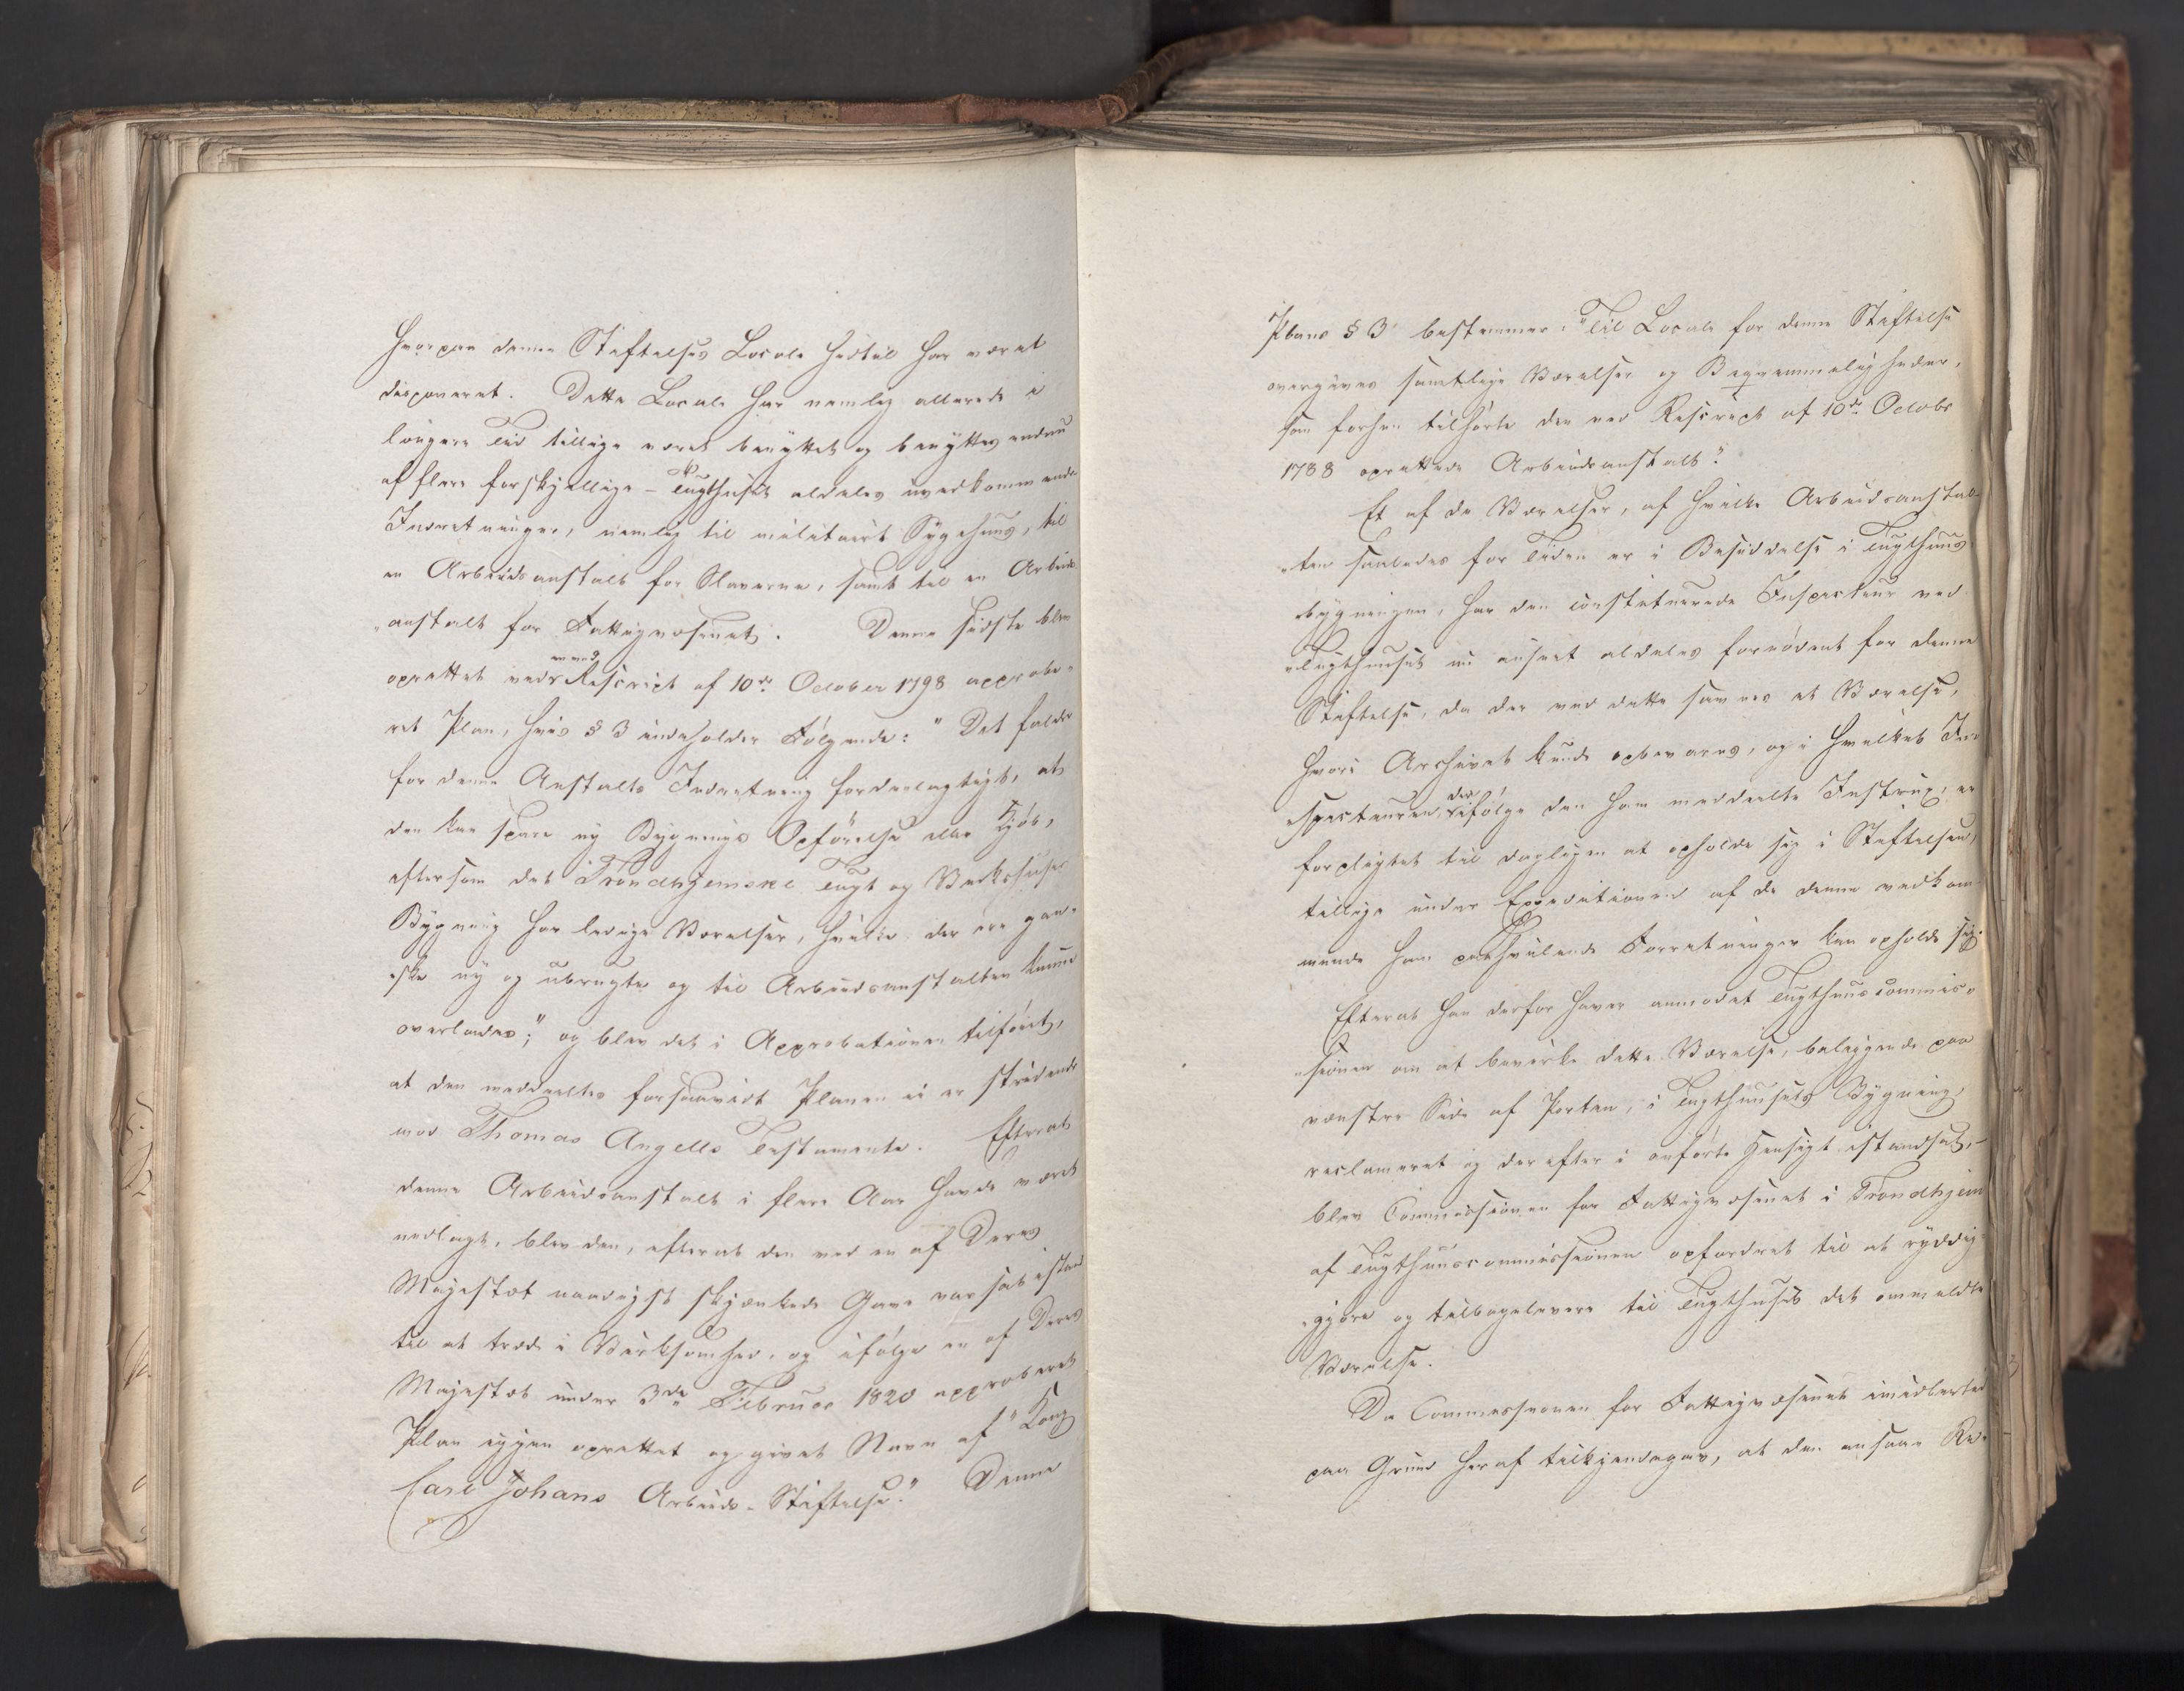 hvorpaa denne Stiftelses Locale hidtil har været
disponeret. Dette Locale har nemlig allerede i
længere Tid tillige været benyttet og benyttes endnu
af flere forskjellige - Tugthuset aldeles uvedkommende
Indretninger, nemlig til militairt Sygehuus, til
en Arbeidsanstalt for Slaverne, samt til en Arbeids-
anstalt for Fattigvæsenet. Denne sidste blev
oprettet ved en ved Rescript af 10de October 1798 approbe-
ret Plan, hvis § 3 indeholder Følgende: "Det falder
for denne Anstalts Indretning fordeelagtigt, at
den kan spare ny Bygnings Opførelse eller Kjøb,
eftersom det Trondhjemske Tugt og Værkshuses
Bygning har ledige Værelser, hvilke der ere gan-
ske ny og ubrugte og til Arbeidsanstalten kunne
overlades;" og blev det i Approbationen tilføiet,
at den meddeeltes forsaavidt Planen ei er stridende
mod Thomas Angells Testamente. Efterat
denne Arbeidsanstalt i flere Aar havde været
nedlagt, blev den, efterat den ved en af Deres
Majestæt naadigst skjænkede Gave var sat istand
til at træde i Virksomhed, og ifølge en af Deres
Majestæt under 3die Februar 1820 approberet
Plan igjen oprettet og givet Navn af "Kong
Carl Johans Arbeids-Stiftelse." Denne
Plans § 3 bestemmer: "Til Locale for denne Stiftelse
overgives samtlige Værelser og Beqvemmeligheder,
som forhen tilhørte den ved Rescript af 10de Octobr
1788 oprettede Arbeidsanstalt."
Et af de Værelser, af hvilke Arbeidsanstal-
ten saaledes for Tiden er i Besiddelse i Tugthuus-
bygningen, har den constituerede Inspecteur ved
Tugthuuset nu anseet aldeles fornødent for denne
Stiftelse, da der ved dette savnes et Værelse,
hvori Archivet kunde opbevares, og i hvilket In-
specteuren, der ifølge den ham meddeelte Instrux, er
forpligtet til dagligen at opholde sig i Stiftelsen,
tillige under Expeditionen af de denne vedkom-
mende ham paahvilende Forretninger kan opholde sig.
Efterat han derfor haver anmodet Tugthuuscommis-
sionen om at bevirke dette Værelse, beliggende paa
venstre Side af Porten, i Tugthuusets Bygning,
reclameret og derefter i anførte Hensigt istandsat, -
blev Commissionen for Fattigvæsenet i Trondhjem
af Tugthuuscommissionen opfordret til at ryddig-
gjøre og tilbagelevere til Tugthuset det ommeldte
Værelse.
Da Commissionen for Fattigvæsenet imidlertid
paa Grund heraf tilkjendegav, at den ansaae Re-